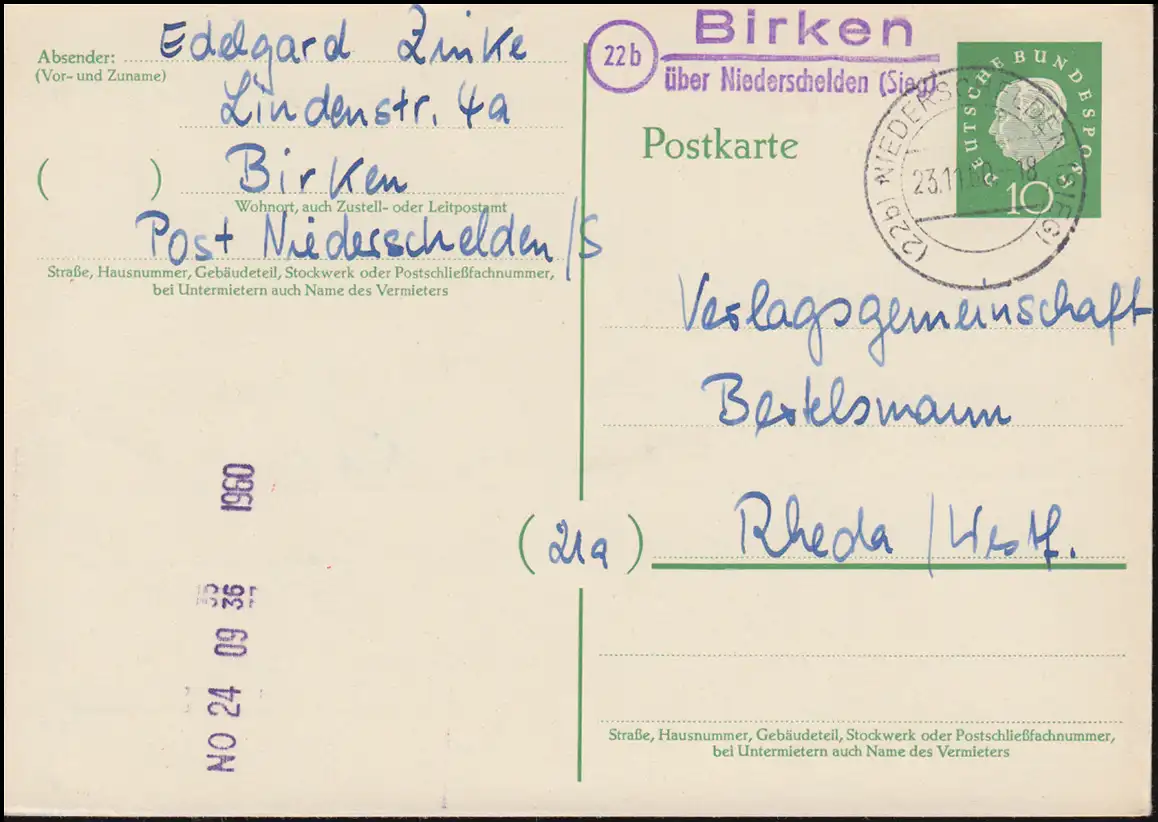 Absender: Edelgard Zinke
(Vor- und Zuname)
Lindenstr. 4a
( ) Birken
Wohnort, auch Zustell- oder Leitpostamt
Post Niederschelden/S
Straße, Hausnummer, Gebäudeteil, Stockwerk oder Postschließfachnummer,
bei Untermietern auch Name des Vermieters
22b
Birken
über Niederschelden (Sieg)
Postkarte
DEUTSCHE BUNDESPOST
10
(22b) NIEDERSCHELDEN (SIEG)
23.11.60.-18
Verlagsgemeinschaft
Bertelsmann
(21a) Rheda/Westf.
Straße, Hausnummer, Gebäudeteil, Stockwerk oder Postschließfachnummer,
bei Untermietern auch Name des Vermieters
NO 24 09 36 1960